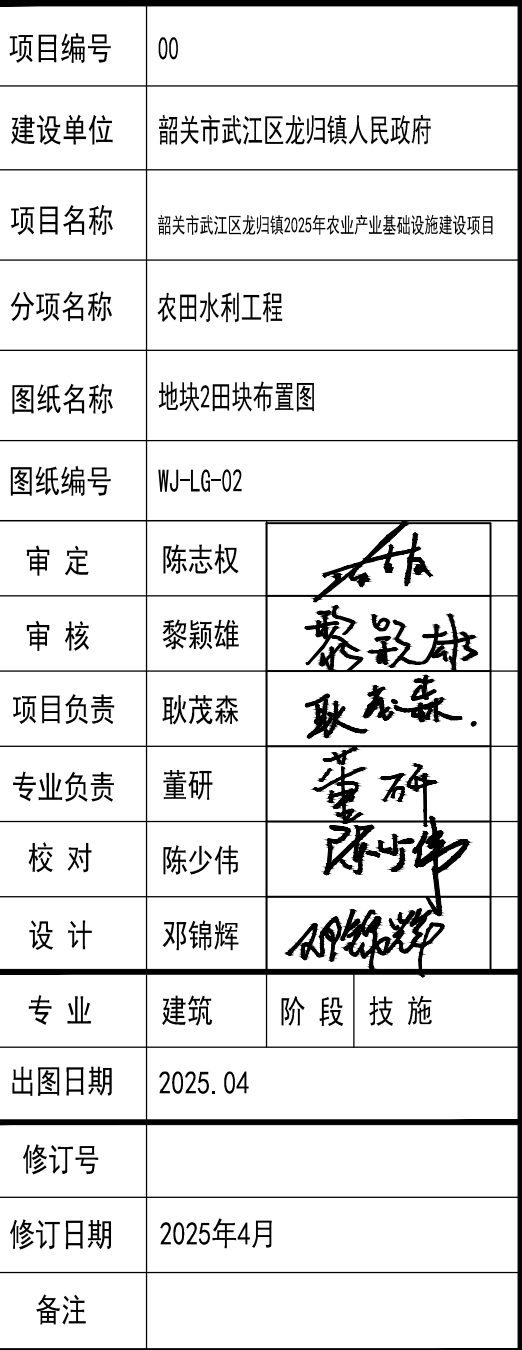 项目编号 00
建设单位 韶关市武江区龙归镇人民政府
项目名称 韶关市武江区龙归镇2025年农业产业基础设施建设项目
分项名称 农田水利工程
图纸名称 地块2田块布置图
图纸编号 WJ-LG-02
审 定 陈志权
审 核 黎颖雄 黎颖雄
项目负责 耿茂森 耿茂森
专业负责 董研 董研
校 对 陈少伟 陈少伟
设 计 邓锦辉 邓锦辉
专 业 建筑 阶 段 技 施
出图日期 2025.04
修订号
修订日期 2025年4月
备注